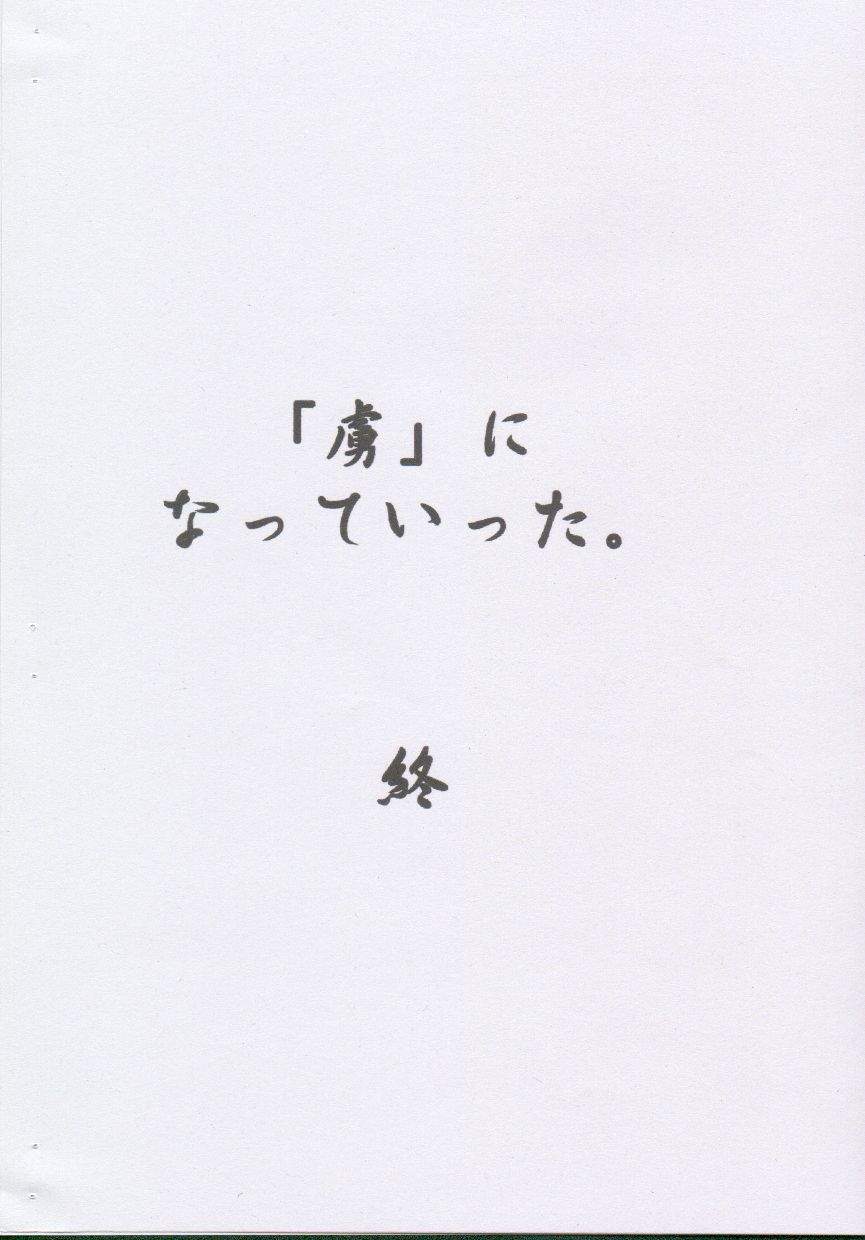 「虜」に
なっていった。
終